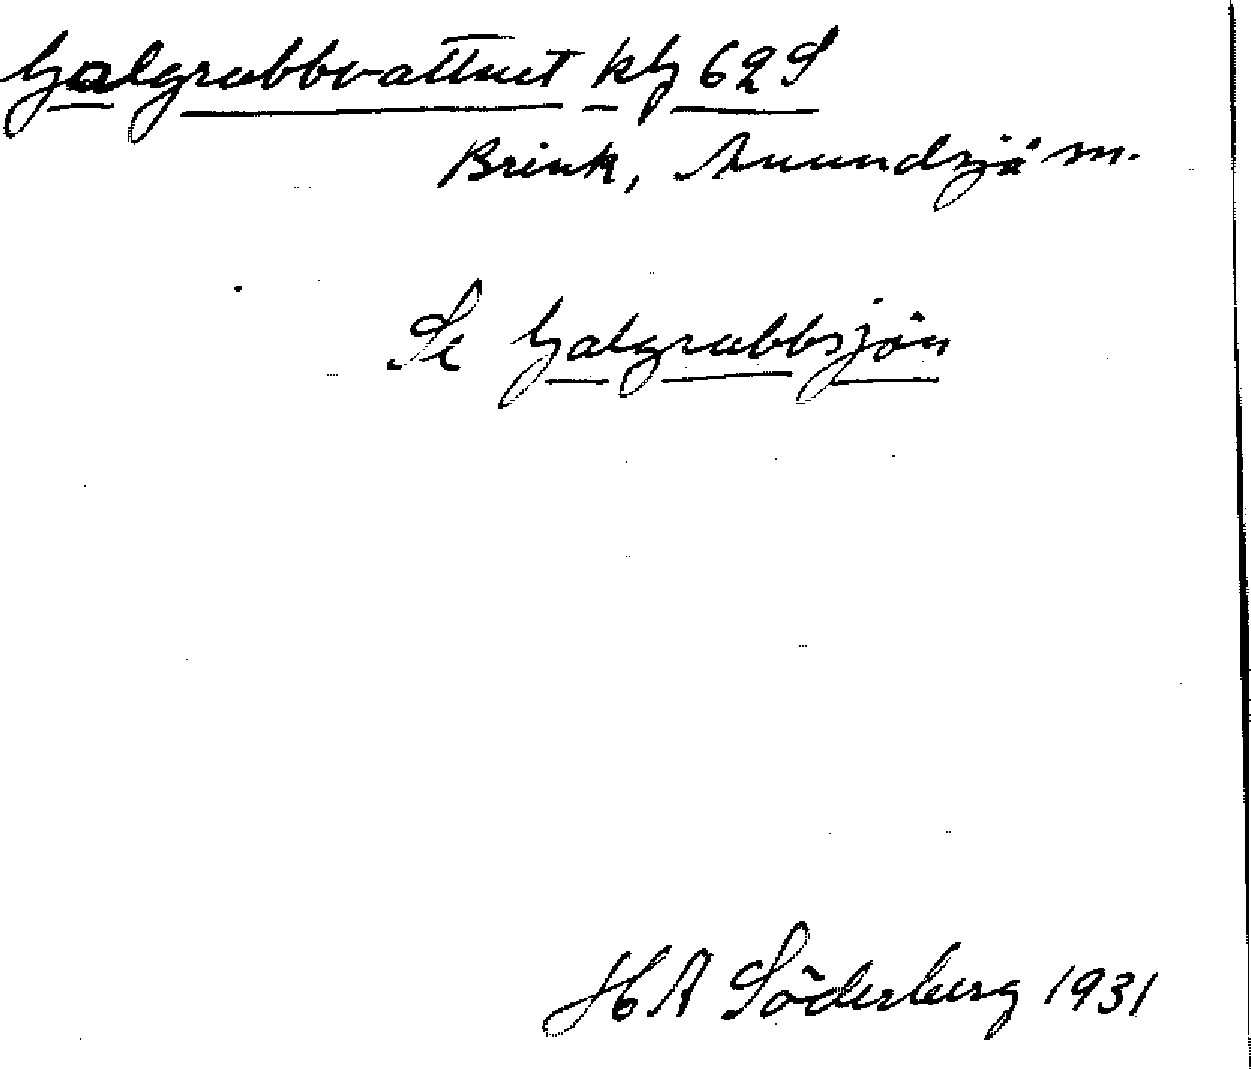 Galgrubbvattnet kbg 62 S
Brink, Anundsjö sn.
Se Galgrubbsjön
H A Söderberg 1931